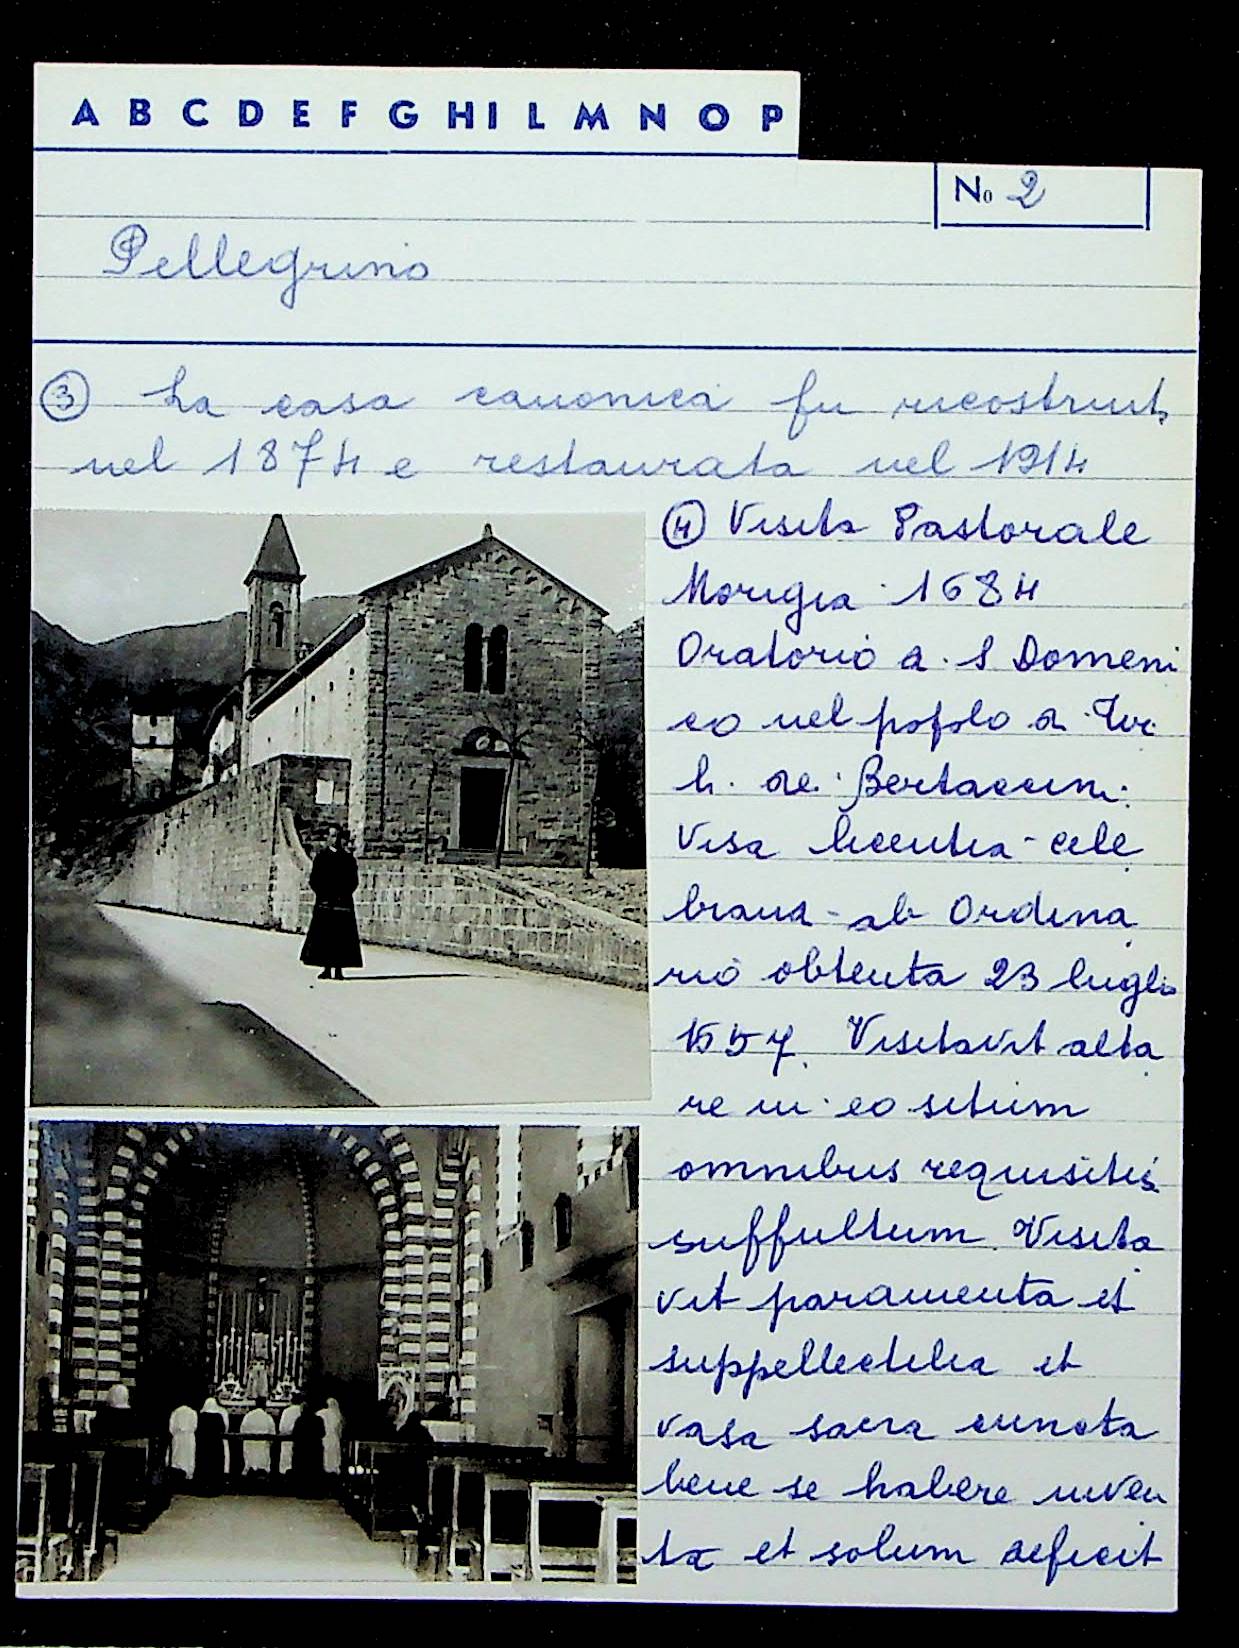 A B C D E F G H I L M N O P
No 2
Pellegrino
③ La casa canonica fu ricostruita
nel 1874 e restaurata nel 1914
④ Visita Pastorale
Morigia 1684
Oratorio di S Domeni
co nel popolo di
de Bertaccini
Visa licentia cele
brandi ab Ordina
rio obtenta 23 luglio
1557. Visitavit alta
re in eo situm
omnibus requisitis
suffultum. Visita
vit paramenta et
suppellectilia et
vasa sacra cuncta
bene se habere inven
ta et solum deficit